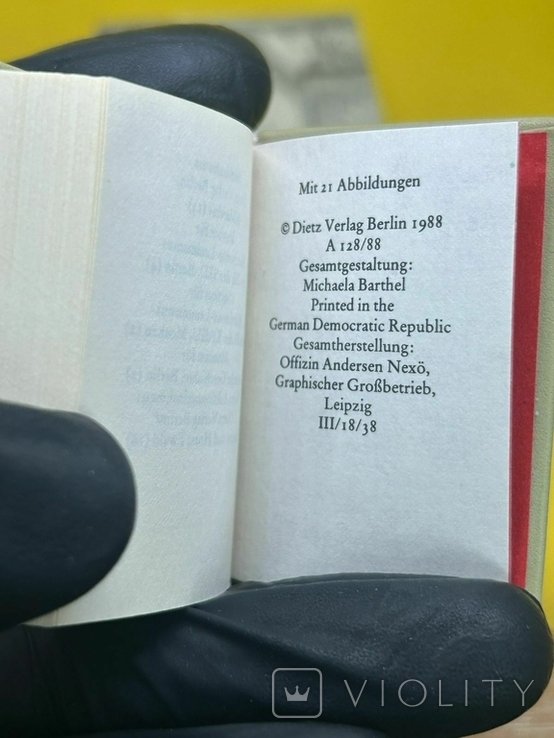 Mit 21 Abbildungen
© Dietz Verlag Berlin 1988
A 128/88
Gesamtgestaltung:
Michaela Barthel
Printed in the
German Democratic Republic
Gesamtherstellung:
Offizin Andersen Nexö,
Graphischer Großbetrieb,
Leipzig
III/18/38
VIOLITY